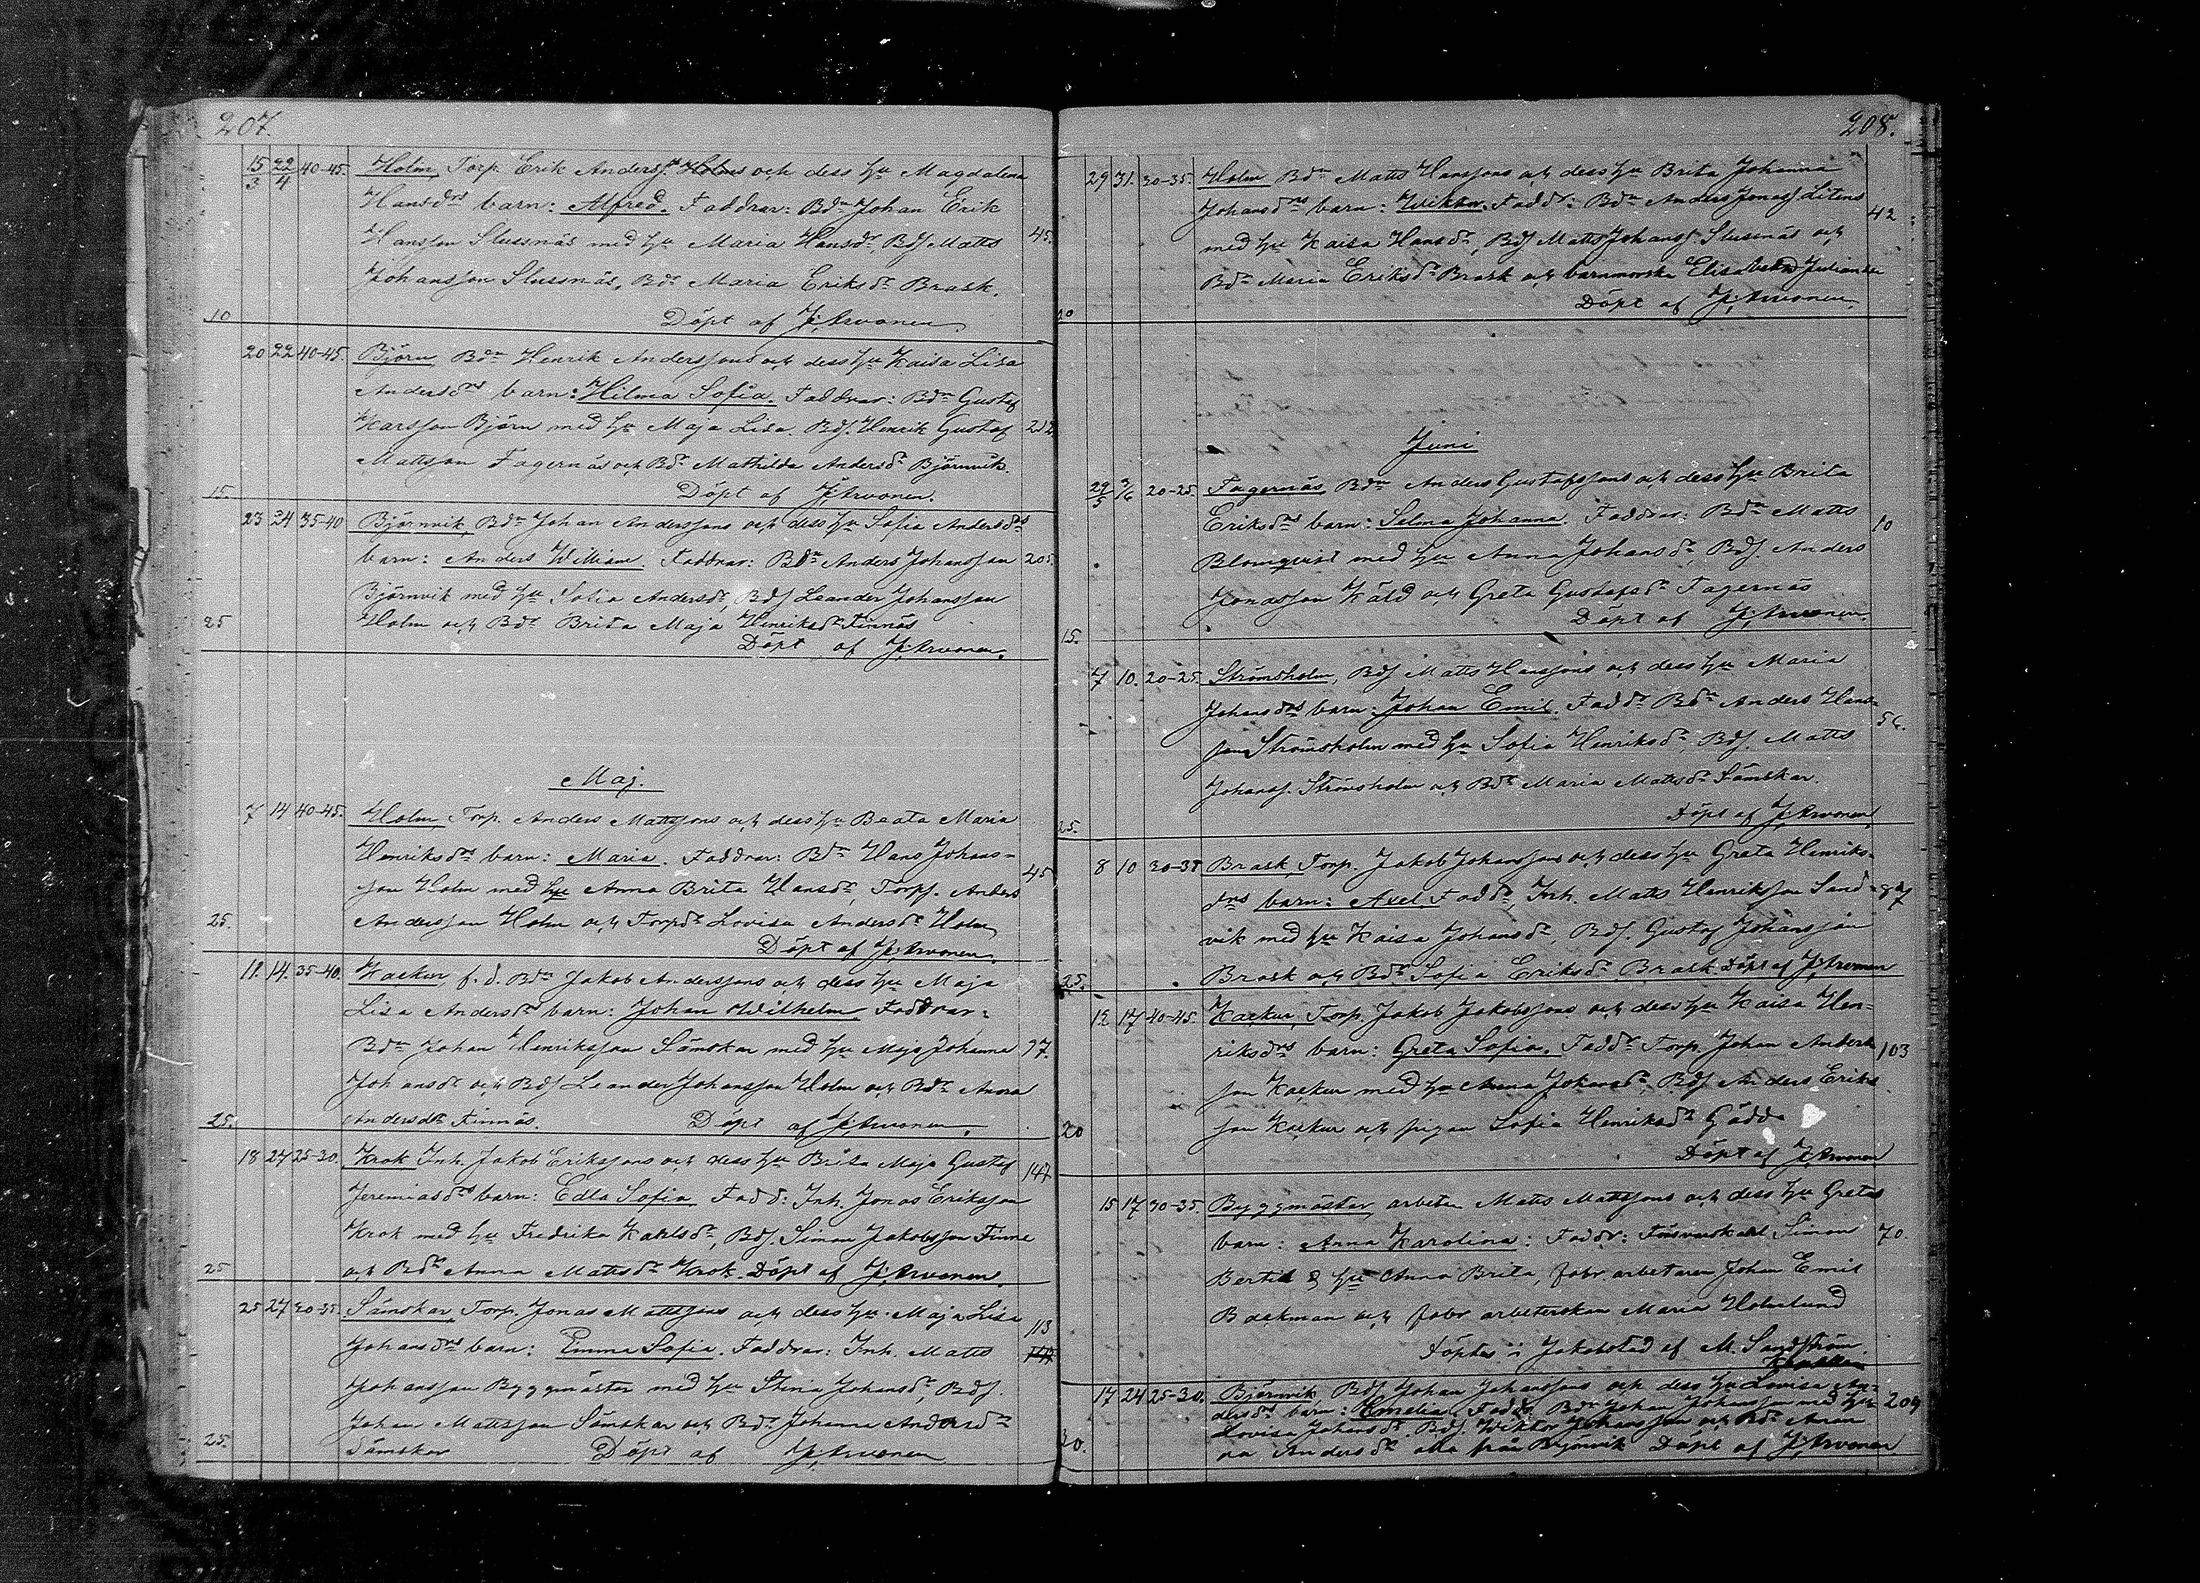 207.
15/3 22/4 40-45. Holm, Torp. Erik Anderss. Holms och dess hu Magdalena
Hansdrs barn: Alfred. Faddrar: Bdn Johan Erik
Hansson Slussnäs med hu Maria Hansdr. Bds Matts 45.
Johansson Slussnäs, Bdr Maria Eriksdr Brask.
10 Döpt af J. Arvonen.
20 22 40-45. Björn, Bdn Henrik Anderssons och dess hu Kaisa Lisa
Andersdrs barn: Hilma Sofia. Faddrar: Bdn Gustaf
Karsson Björn med hu Maja Lisa. Bds. Henrik Gustaf 212
Mattsson Fagernäs och Bdr Mathilda Andersdr Björnvik.
15. Döpt af J. Arvonen.
23 24 35-40 Björnvik, Bdn Johan Anderssons och dess hu Sofia Andersdrs
barn: Anders William. Faddrar: Bdn Anders Johansson 205.
Björnvik med hu Sofia Andersdr, Bds Leander Johansson
25 Holm och Bdr Brita Maja Henriksdr Finnäs
Döpt af J. Arvonen.
Maj.
7 14 40-45. Holm, Torp. Anders Mattssons och dess hu Beata Maria
Henriksdrs barn: Maria. Faddrar: Bdn Hans Johans-
son Holm med hu Anna Brita Hansdr, Torps. Anders 45
25. Andersson Holm och Torpdr Lovisa Andersdr Holm
Döpt af J. Arvonen.
11. 14. 35-40. Kackur, f. d. Bdn Jakob Anderssons och dess hu Maja
Lisa Andersdrs barn: Johan Wilhelm. Faddrar:
Bdn Johan Henriksson Sämskar med hu Maja Johanna 97.
Johansdr och Bds Leander Johansson Holm och Bdr Anna
25. Andersdr Finnäs. Döpt af J. Arvonen.
18 27 25-30. Krok Inh. Jakob Erikssons och dess hu Brita Maja Gustaf 147
Jeremiasdrs barn: Edla Sofia. Fadd: Inh. Jonas Eriksson
Krok med hu Fredrika Karlsdr, Bds. Simon Jakobsson Finne
25 och Bdr Anna Mattsdr Krok. Döpt af J. Arvonen.
25 27 30-35. Sämskar, Torp. Jonas Mattssons och dess hu Maja Lisa 113
Johansdrs barn: Emma Sofia. Faddrar: Inh. Matts
Johansson Byggmästar med hu Stina Johansdr, Bds.
Johan Mattsson Sämskar och Bdr Johanna Andersdr
25. Sämskar Döpt af J. Arvonen
208.
29 31. 30-35. Holm Bdn Matts Hanssons och dess hu Brita Johanna
Johansdrs barn: Wiktor. Faddr: Bdn Anders Jonass. Litens 42
med hu Kaisa Hansdr, Bds Matts Johanss. Slussnäs och
Bdr Maria Eriksdr Brask och barnmorska Elisabeth Julianka
10 Döpt af J. Arvonen.
Juni
29/5 3/6 20-25. Fagernäs, Bdn Anders Gustafssons och dess hu Brita
Eriksdrs barn: Selma Johanna. Faddrar: Bdn Matts 10
Blomqvist med hu Anna Johansdr, Bds. Anders
Jonasson Käld och Greta Gustafsdr Fagernäs
15. Döpt af J. Arvonen.
7 10. 20-25. Strömsholm, Bds Matts Hanssons och dess hu Maria
Johansdrs barn: Johan Emil. Faddr Bdn Anders Hans- 56.
son Strömsholm med hu Sofia Henriksdr, Bds. Matts
Johanss. Strömsholm och Bdr Maria Mattsdr Sämskar.
25. Döpt af J. Arvonen
8 10 30-35 Brask, Torp. Jakob Johanssons och dess hu Greta Henriks-
drs barn: Axel. Faddr, Inh. Matts Henriksson Sand- 87
vik med hu Kaisa Johansdr, Bds. Gustaf Johansson
25. Brask och Bdr Sofia Eriksdr Brask. Döpt af J. Arvonen
12 17 40-45. Kackur, Torp. Jakob Jakobssons och dess hu Kaisa Hen-
riksdrs barn: Greta Sofia. Faddr Torp. Johan Anders- 103
son Kackur med hu Anna Johansdr, Bds Anders Eriks
20 son Kackur och pigan Sofia Henriksdr Gädda
Döpt af J. Arvonen
15 17 30-35. Byggmästar, arbetar Matts Mattssons och dess hu Gretas
barn: Anna Karolina: Faddr: Simon 70.
Bertil & hu Anna Brita, fabr. arbetaren Johan Emil
Backman och fabr arbeterskan Maria Holmlund
Döptes i Jakobstad af M. Sandström
17 24 25-30. Björnvik Bds Johan Johanssons och dess hu Lovisa An-
dersdrs barn: Emelia. Faddr Bdn Johan Johansson med hu 209
Lovisa Johansdr. Bds. Wiktor Johansson och Bdr Anna
30. Andersdr alla från Björnvik Döpt af J. Arvonen